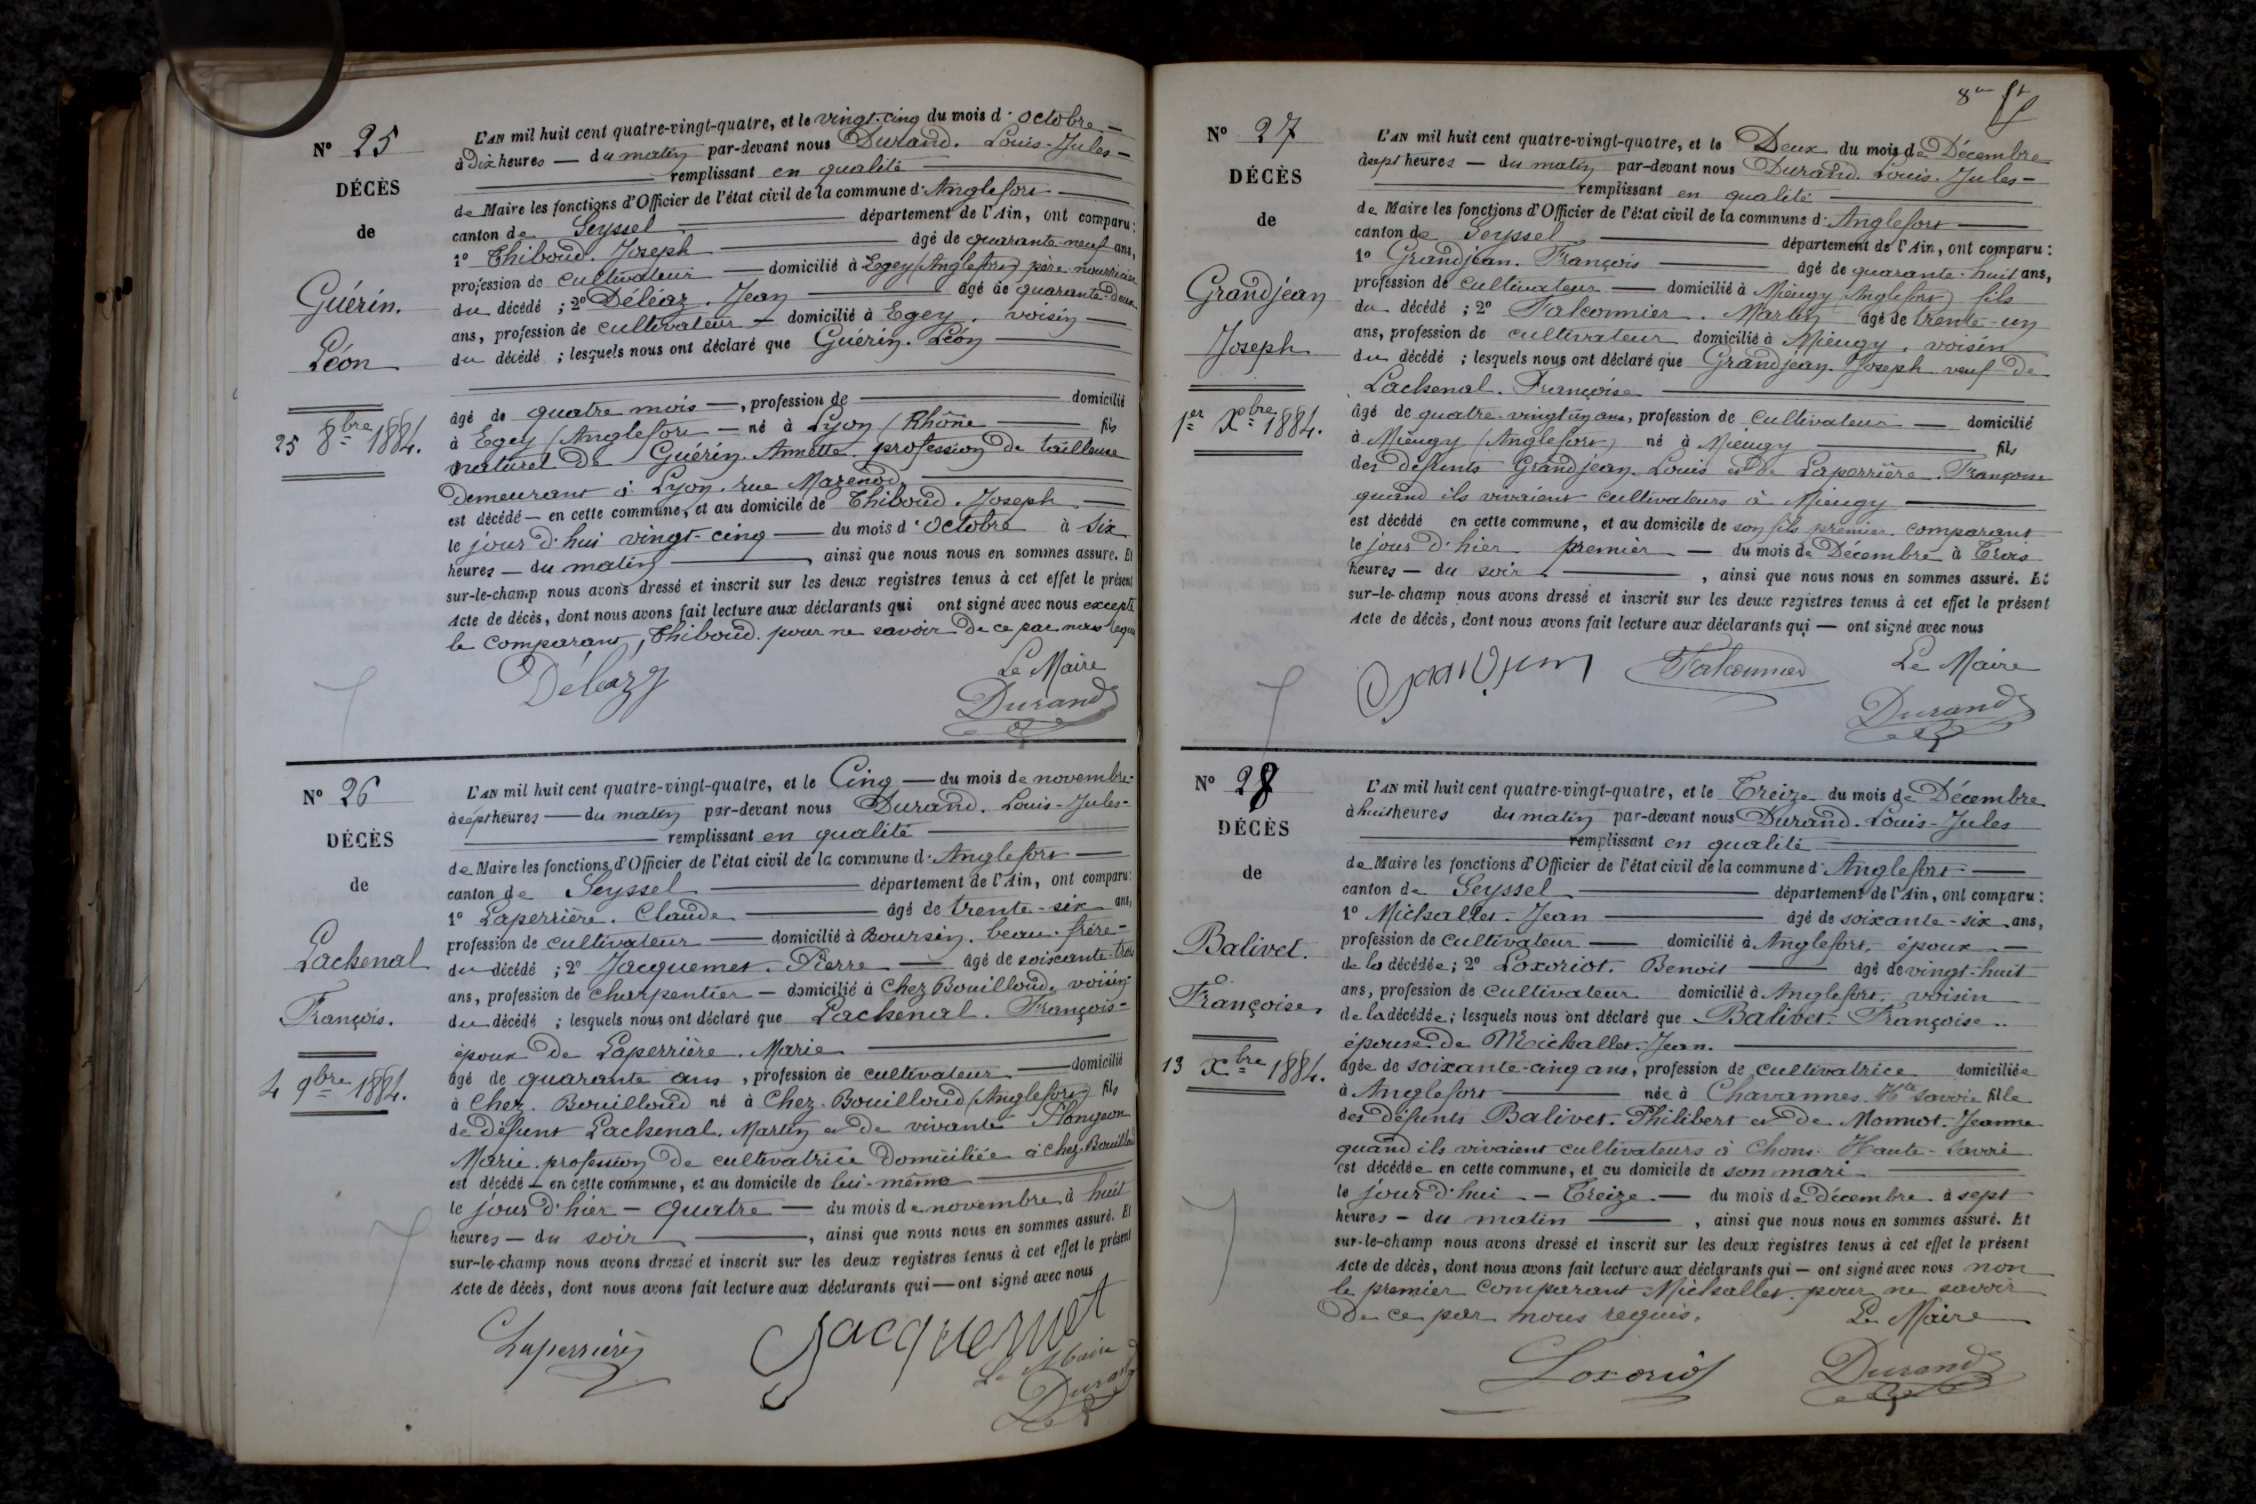 N° 25
DÉCÈS
de
Guérin.
Léon
25 8bre 1884.
L'AN mil huit cent quatre-vingt-quatre, et le vingt-cinq du mois d'octobre
à dix heures — du matin par-devant nous Durand. Louis-Jules
remplissant en qualité
de Maire les fonctions d'Officier de l'état civil de la commune d'Anglefort
canton de Seyssel département de l'Ain, ont comparu:
1° Thiboud. Joseph âgé de quarante-neuf ans,
profession de cultivateur domicilié à Egey (Anglefort) père nourricier
du décédé ; 2° Déléaz. Jean âgé de quarante-deux
ans, profession de cultivateur domicilié à Egey. voisin
du décédé ; lesquels nous ont déclaré que Guérin. Léon
âgé de quatre mois, profession de domicilié
à Egey (Anglefort — né à Lyon (Rhône fils
naturel de Guérin. Annette. profession de tailleuse
demeurant à Lyon. rue Mazenod
est décédé — en cette commune, et au domicile de Thiboud. Joseph
le jour d'hui vingt-cinq — du mois d'octobre à six
heures — du matin, ainsi que nous nous en sommes assuré. Et
sur-le-champ nous avons dressé et inscrit sur les deux registres tenus à cet effet le présent
Acte de décès, dont nous avons fait lecture aux déclarants qui ont signé avec nous excepté
le comparant, Thiboud. pour ne savoir de ce par nous requis
Déléaz
Le Maire
Durand
N° 26
DÉCÈS
de
Lachenal
François.
4 9bre 1884.
L'AN mil huit cent quatre-vingt-quatre, et le Cinq — du mois de novembre
à sept heures — du matin par-devant nous Durand. Louis-Jules
remplissant en qualité
de Maire les fonctions d'Officier de l'état civil de la commune d'Anglefort
canton de Seyssel département de l'Ain, ont comparu:
1° Laperrière. Claude âgé de trente-six ans,
profession de cultivateur domicilié à Boursin. beau-frère
du décédé ; 2° Jacquemet. Pierre âgé de soixante-trois
ans, profession de charpentier — domicilié à Chez Bouilloud. voisin
du décédé ; lesquels nous ont déclaré que Lachenal. François
époux de Laperrière. Marie
âgé de quarante ans, profession de cultivateur domicilié
à Chez. Bouilloud né à Chez. Bouilloud (Anglefort) fils
de défunt Lachenal. Martin et de vivante Plongeon
Marie. profession de cultivatrice domiciliée à chez. Bouilloud
est décédé — en cette commune, et au domicile de lui-même
le jour d'hier — quatre — du mois de novembre à huit
heures — du soir, ainsi que nous nous en sommes assuré. Et
sur-le-champ nous avons dressé et inscrit sur les deux registres tenus à cet effet le présent
Acte de décès, dont nous avons fait lecture aux déclarants qui — ont signé avec nous
Laperrière
Jacquemet
Le Maire
Durand
8
N° 27
DÉCÈS
de
Grandjean
Joseph
1er Xbre 1884.
L'AN mil huit cent quatre-vingt-quatre, et le Deux du mois de Décembre
à sept heures — du matin par-devant nous Durand. Louis-Jules
remplissant en qualité
de Maire les fonctions d'Officier de l'état civil de la commune d'Anglefort
canton de Seyssel département de l'Ain, ont comparu:
1° Grandjean. François âgé de quarante-huit ans,
profession de cultivateur domicilié à Mieugy (Anglefort) fils
du décédé ; 2° Falconnier. Martin âgé de trente-un
ans, profession de cultivateur domicilié à Mieugy. voisin
du décédé ; lesquels nous ont déclaré que Grandjean. Joseph veuf de
Lachenal. Françoise
âgé de quatre-vingt-un ans, profession de cultivateur domicilié
à Mieugy (Anglefort) né à Mieugy fils
des défunts Grandjean. Louis et de Laperrière. Françoise
quand ils vivaient cultivateurs à Mieugy
est décédé en cette commune, et au domicile de son fils premier comparant
le jour d'hier premier — du mois de Décembre à Trois
heures — du soir, ainsi que nous nous en sommes assuré. Et
sur-le-champ nous avons dressé et inscrit sur les deux registres tenus à cet effet le présent
Acte de décès, dont nous avons fait lecture aux déclarants qui — ont signé avec nous
Falconnier
Le Maire
Durand
N° 28
DÉCÈS
de
Balivet.
Françoise,
13 Xbre 1884.
L'AN mil huit cent quatre-vingt-quatre, et le Treize du mois de Décembre
à huit heures du matin par-devant nous Durand. Louis-Jules
remplissant en qualité
de Maire les fonctions d'Officier de l'état civil de la commune d'Anglefort
canton de Seyssel département de l'Ain, ont comparu:
1° Michallet. Jean âgé de soixante-six ans,
profession de cultivateur domicilié à Anglefort. époux
de la décédée; 2° Loxoriot. Benoit âgé de vingt-huit
ans, profession de cultivateur domicilié à Anglefort. voisin
de la décédée; lesquels nous ont déclaré que Balivet. Françoise
épouse de Michallet. Jean.
âgée de soixante-cinq ans, profession de cultivatrice domiciliée
à Anglefort née à Chavannes. Hte Savoie fille
des défunts Balivet. Philibert et de Monnot. Jeanne
quand ils vivaient cultivateurs à Chons. Haute-Savoie
est décédée en cette commune, et au domicile de son mari
le jour d'hui — Treize — du mois de décembre à sept
heures — du matin, ainsi que nous nous en sommes assuré. Et
sur-le-champ nous avons dressé et inscrit sur les deux registres tenus à cet effet le présent
Acte de décès, dont nous avons fait lecture aux déclarants qui — ont signé avec nous non
le premier comparant Michallet. pour ne savoir
de ce par nous requis.
Le Maire
Loxoriot
Durand